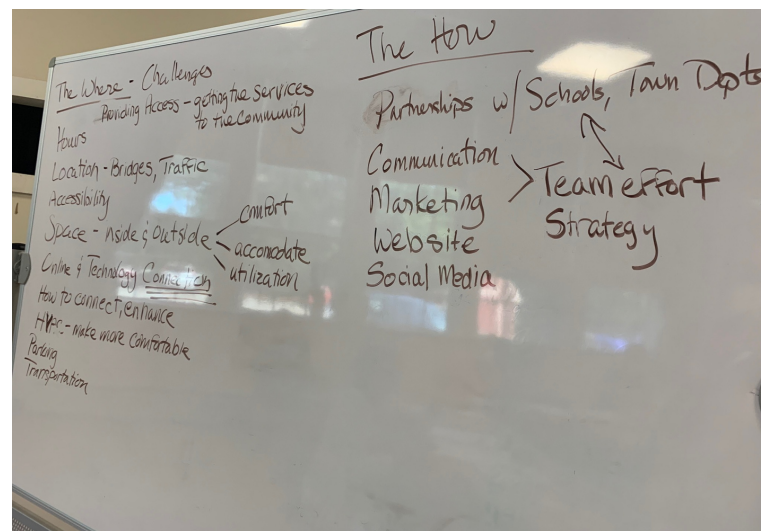 The Where - Challenges
Providing Access - getting the services
to the Community
Hours
Location - Bridges, Traffic
Accessibility
Space - inside & outside
comfort
accomodate
utilization
Online & Technology Connection
How to connect, enhance
HVAC - make more comfortable
Parking
Transportation
The How
Partnerships w/ Schools, Town Depts
Communication
Marketing
Website
Social Media
Team effort
Strategy